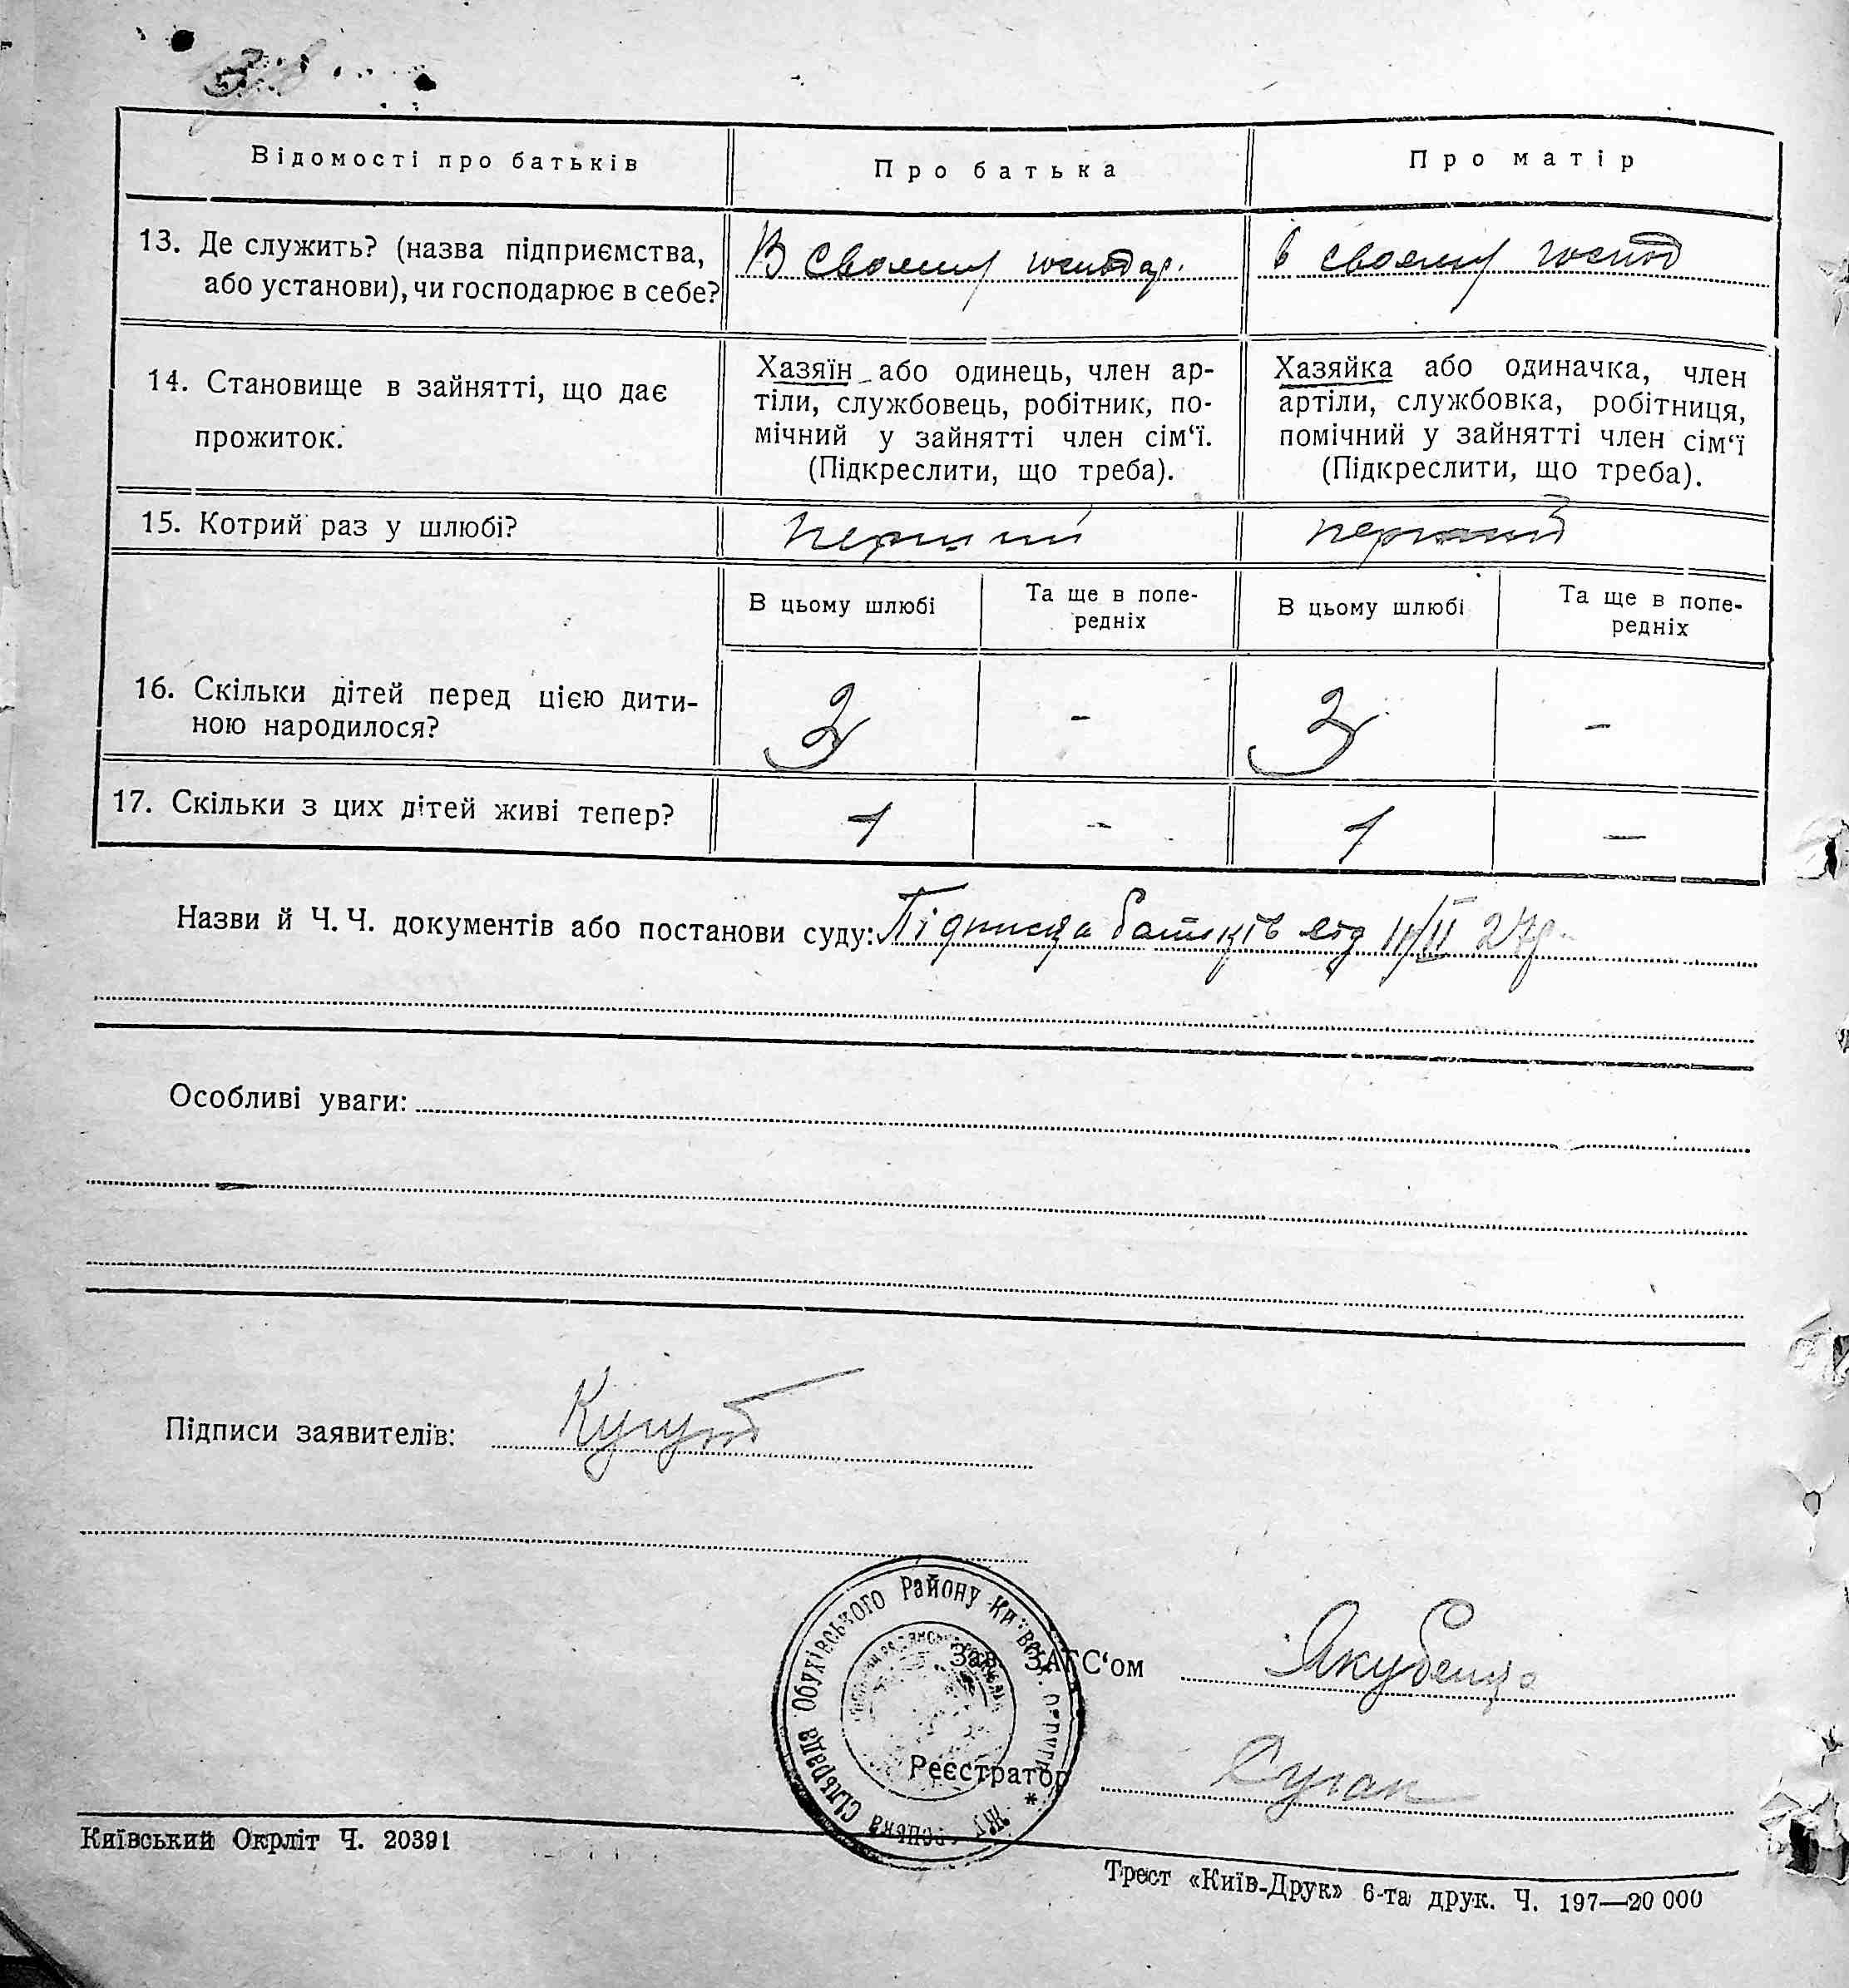 Відомості про батьків
Про батька
Про матір
13. Де служить? (назва підприємства,
або установи), чи господарює в себе?
В своему господар.
в своему господ
14. Становище в зайнятті, що дає
прожиток.
Хазяїн або одинець, член ар-
тіли, службовець, робітник, по-
мічний у зайнятті член сім‘ї.
(Підкреслити, що треба).
Хазяйка або одиначка, член
артіли, службовка, робітниця,
помічний у зайнятті член сім‘ї
(Підкреслити, що треба).
15. Котрий раз у шлюбі?
перший
перший
В цьому шлюбі
Та ще в попе-
редніх
В цьому шлюбі
Та ще в попе-
редніх
16. Скільки дітей перед цією дити-
ною народилося?
3 - 3 -
17. Скільки з цих дітей живі тепер?
1 - 1 -
Назви й Ч. Ч. документів або постанови суду: Підписка батьків від /II 27р.
Особливі уваги:
Підписи заявителів:
Обухівського Району Київськ. Округи
Сільрада
Зав. ЗАГС‘ом
Якубенко
Реєстратор
Київський Окрліт Ч. 20391
Трест «Київ-Друк» 6-та друк. Ч. 197—20 000